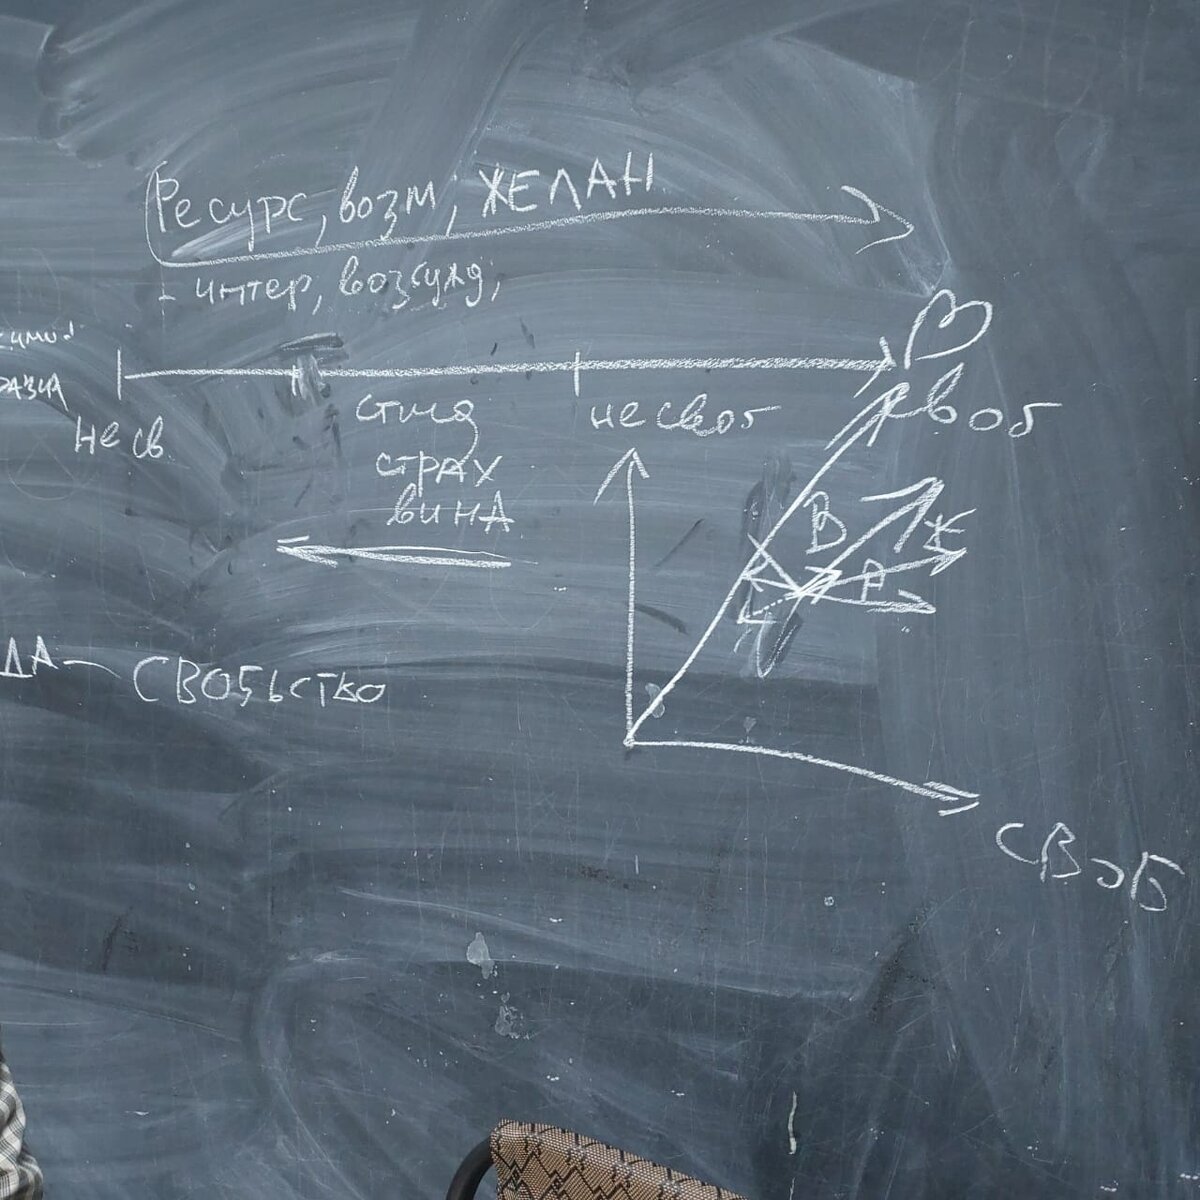 Ресурс, возм, ЖЕЛАН
- интер, возбужд,
Несв.
стыд
страх
вина
несвоб
своб
В
Ж
Р
ДА — СВОБЬСТВО
СВОБ